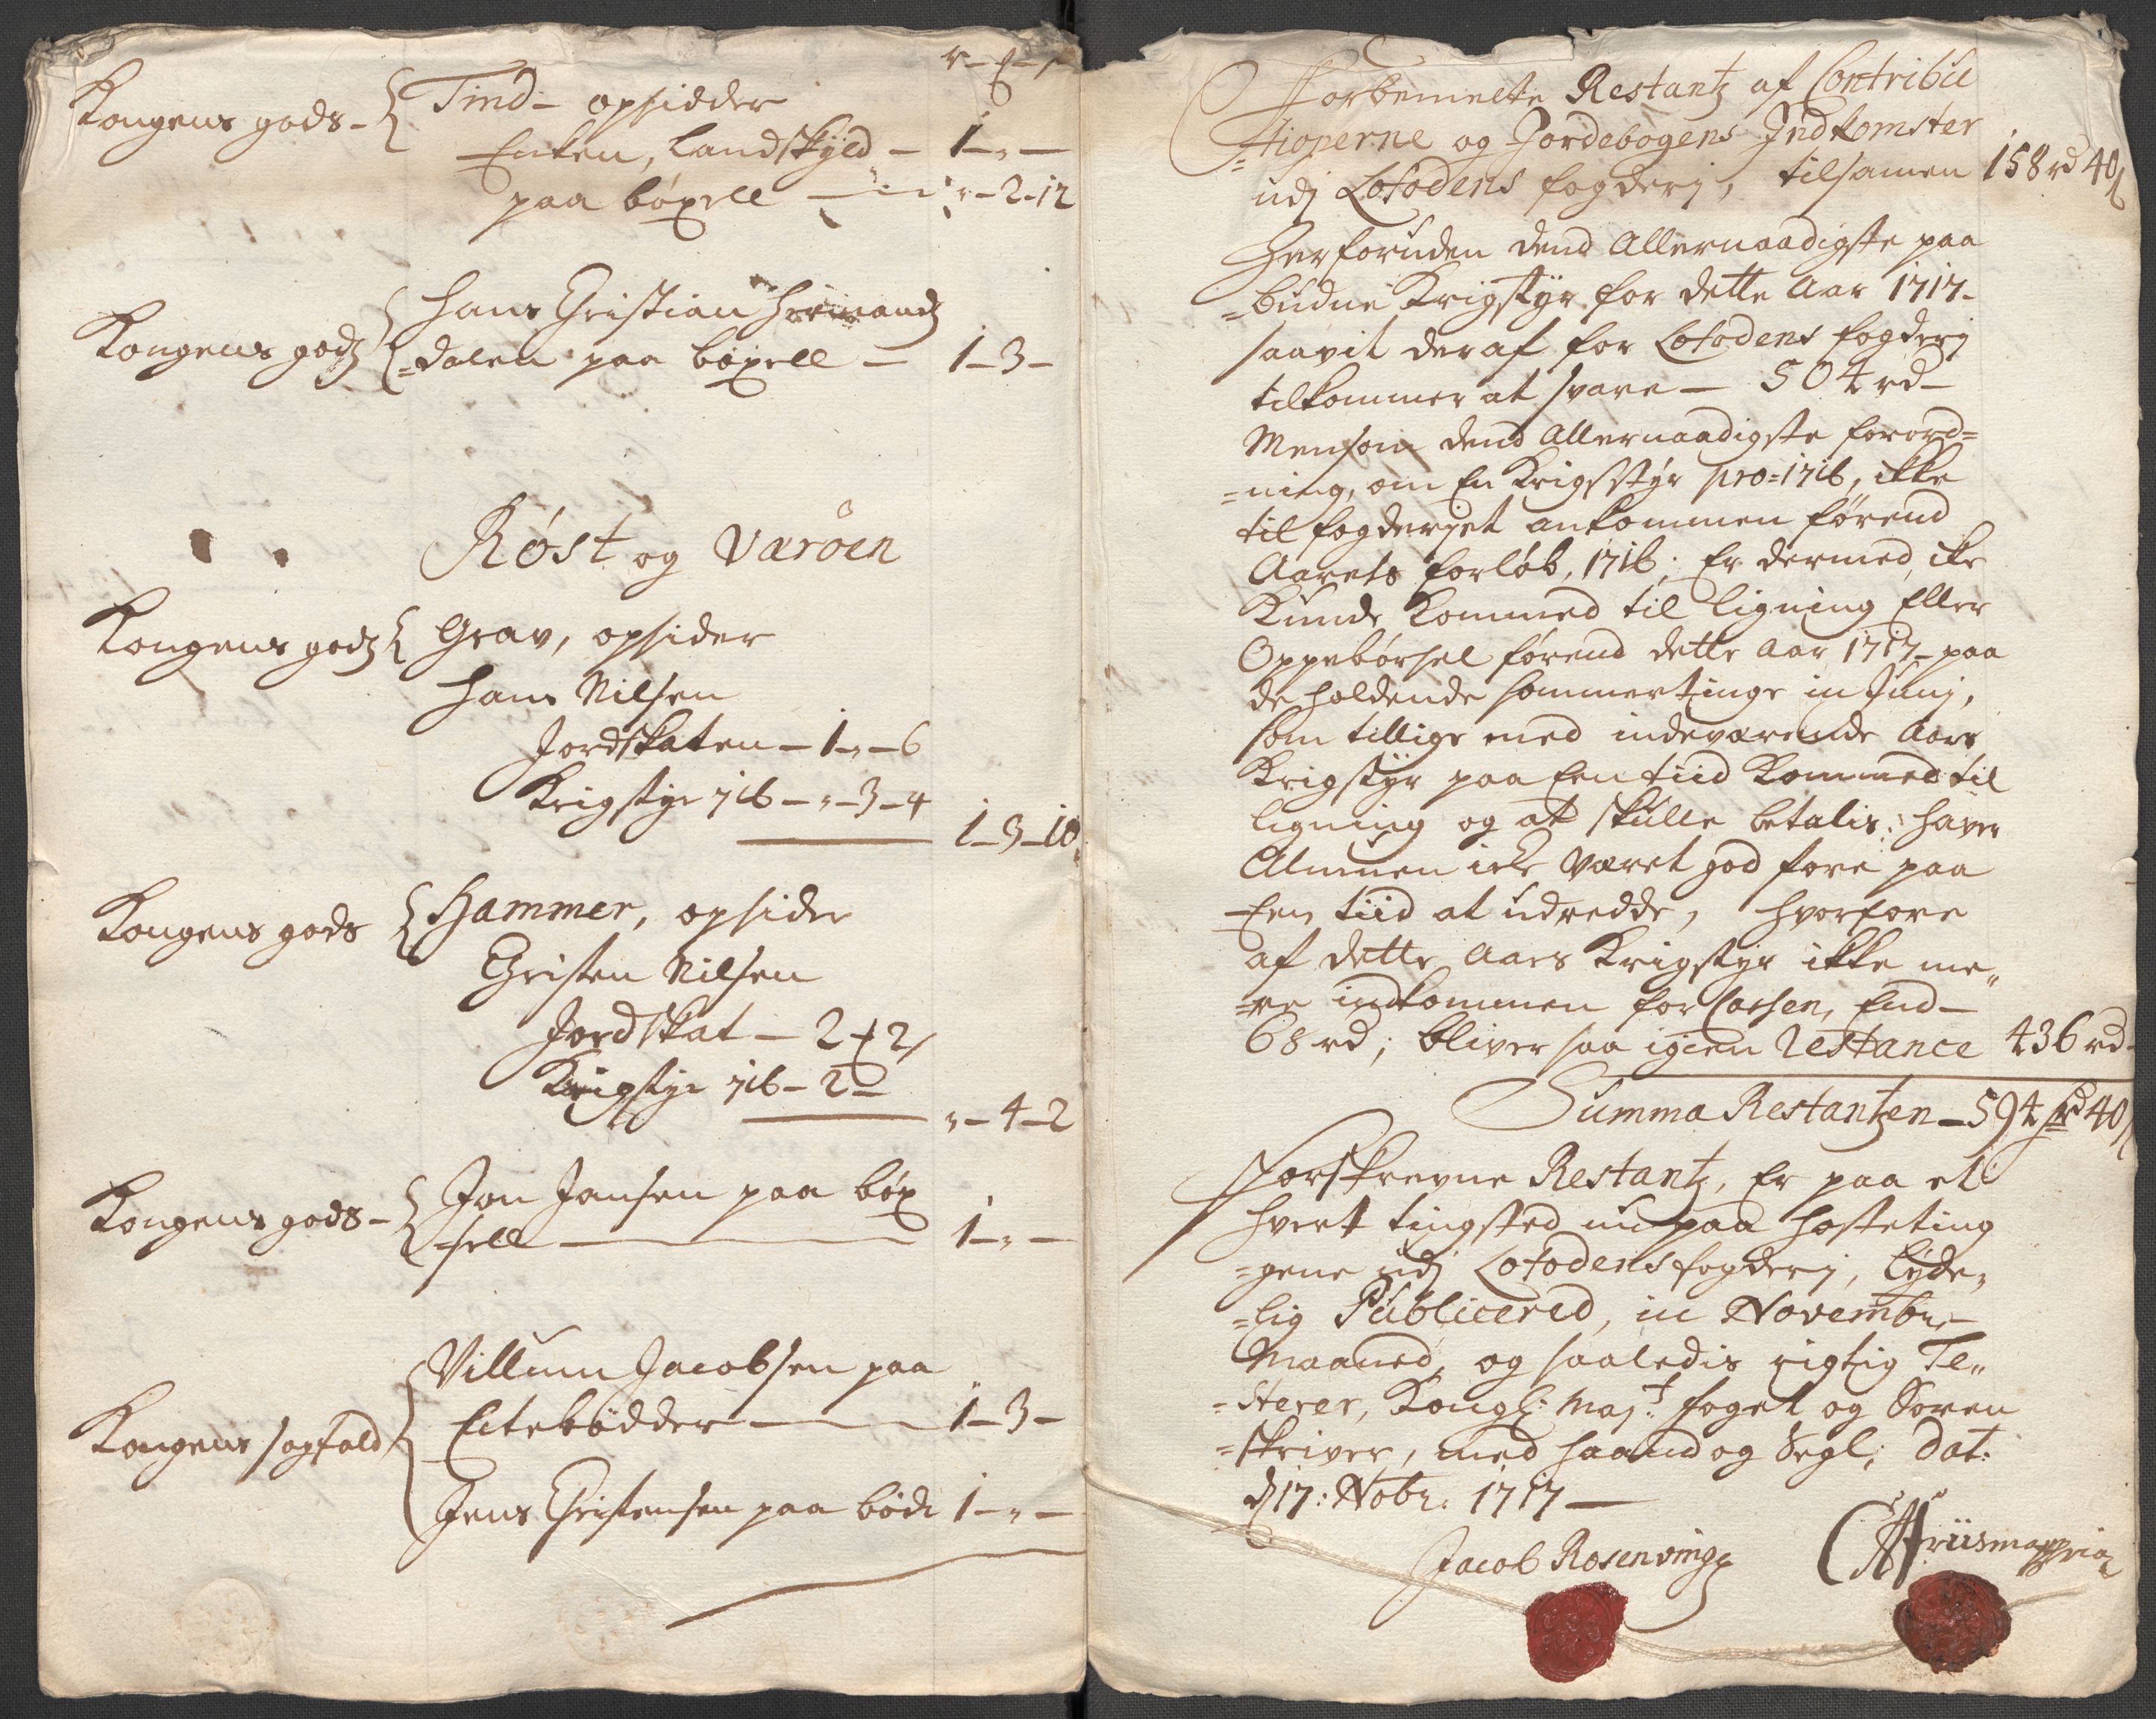 r – £ – s
Kongens gods – Tind – opsidder
Enken, Landskyld – 1 – " –
paa böxell – " – 2 – 12
Hans Christian Hermandz
Kongens godz =dalen paa böxell – 1 – 3 –
Röst og Væröen
Kongens godz Grav, opsider
Hans Nilsen
Jordskaten – 1 – " – 6
Krigstyr 716 – " – 3 – 4
1 – 3 – 10
Kongens gods Hammer, opsider
Christen Nilsen
Jordskat – 2 £ 2 s
Krigstyr 716 – 2 –
" – 4 – 2
Kongens gods – Jon Jansen paa böx
sell – 1 – " –
Villum Jacobsen paa
Eitebödder – 1 – 3 –
Kongens sagfald
Jens Christensen paa böde 1 – " –

Forbemelte Restantz af Contribu
=tioperne og Jordebogens Indkomster
udj Lofodens fogderj, tilsamen 158 rd 40 s
Herforuden dend Allernaadigste paa
=budne Krigstyr for dette Aar 1717 –
saavit deraf for Lofodens fogderj
tilkommer at svare – 504 rd –
Mensom dend Allernaadigste forord=
=ning, om En Krigsstyr pro = 1716, ikke
til fogderjet ankommen förend
Aarets forlöb, 1716; Er dermed, ike
Kunde Kommed til ligning Eller
Oppebörsel förend dette Aar 1717 – paa
de holdende sommertinge in Junj,
som tillige med indeværende Aars
Krigstyr paa Een tiid Kommed til
ligning og at skulle betalis: haver
Almuen icke været god fore paa
Een tiid at udredde, hvorfore
af dette Aars Krigstyr ikke me"
=re indkommen for Cassen, End –
68 rd; bliver saa igien Restance 436 rd –
Summa Restantzen – 594 rd 40 s
Forskrevne Restantz, Er paa et
hvert tingsted nu paa hösteting
=gene udj Lofodens fogderj, lyde"
=lig Publicered, in Novembr –
Maaned, og saaledis rigtig Te"
=sterer, Kongl: Maj:t foget og Soren
=skriver, med haand og Segl; Dat:
d 17: Nobr: 1717 –
Jacob Rosenving
Friis mappria